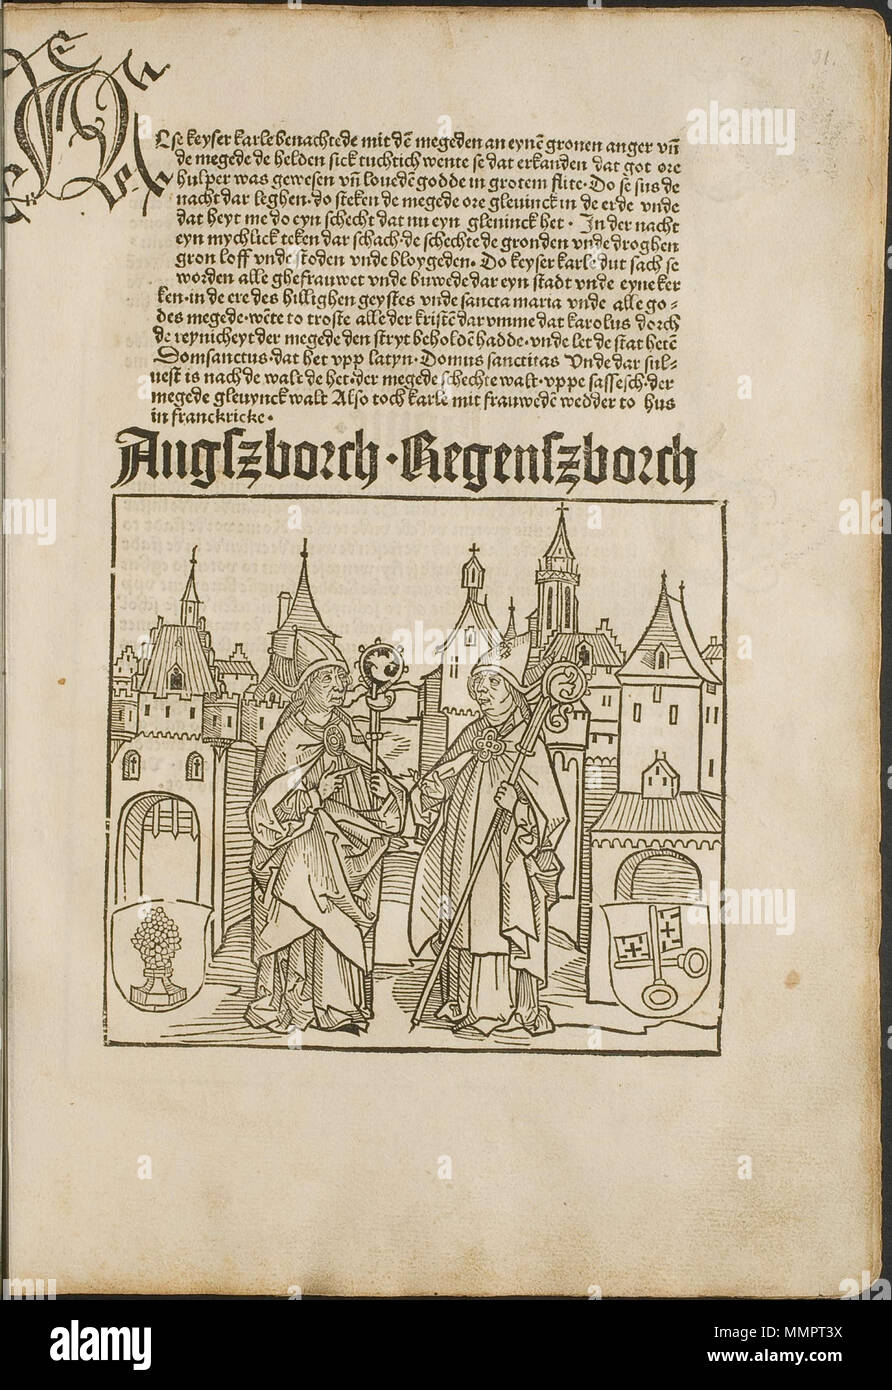 31.
Lse keyser karle benachtede mit dē megeden an eynē gronen anger vn̄
de megede de helden sick tuchtich wente se dat erkanden dat got ore
hulper was gewesen vn̄ louedē godde in grotem flite· Do se sus de
nacht dar leghen· do steken de megede ore gleuinck in de erde vnde
dat heyt me do eyn schecht dat nu eyn gleninck het· In der nacht
eyn mychlick teken dar schach· de schechte de gronden vnde droghen
gron loff vnde stoden vnde bloygeden· Do keyser karle dut sach se
worden alle ghefrauwet vnde buwede dar eyn stadt vnde eyne ker
ken· in de ere des hillighen geystes vnde sancta maria vnde alle go⸗
des megede· wēte to troste alle der kristē dar vmme dat karolus dorch
de reynicheyt der megede den stryt beholdē hadde· vnde let de stat hetē
Domsanctus· dat het vpp latyn· Domus sanctitas Vnde dar sul⸗
uest is nach de walt de het· der megede schechte walt· vppe sassesch· der
megede gleuynck walt Also toch karle mit frauwedē wedder to hus
in franckricke·
Augszborch·Regenszborch
alamy
Image ID: MMPT3X
www.alamy.com